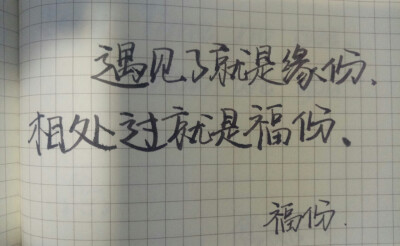 遇见了就是缘份、
相处过就是福份、
福份.